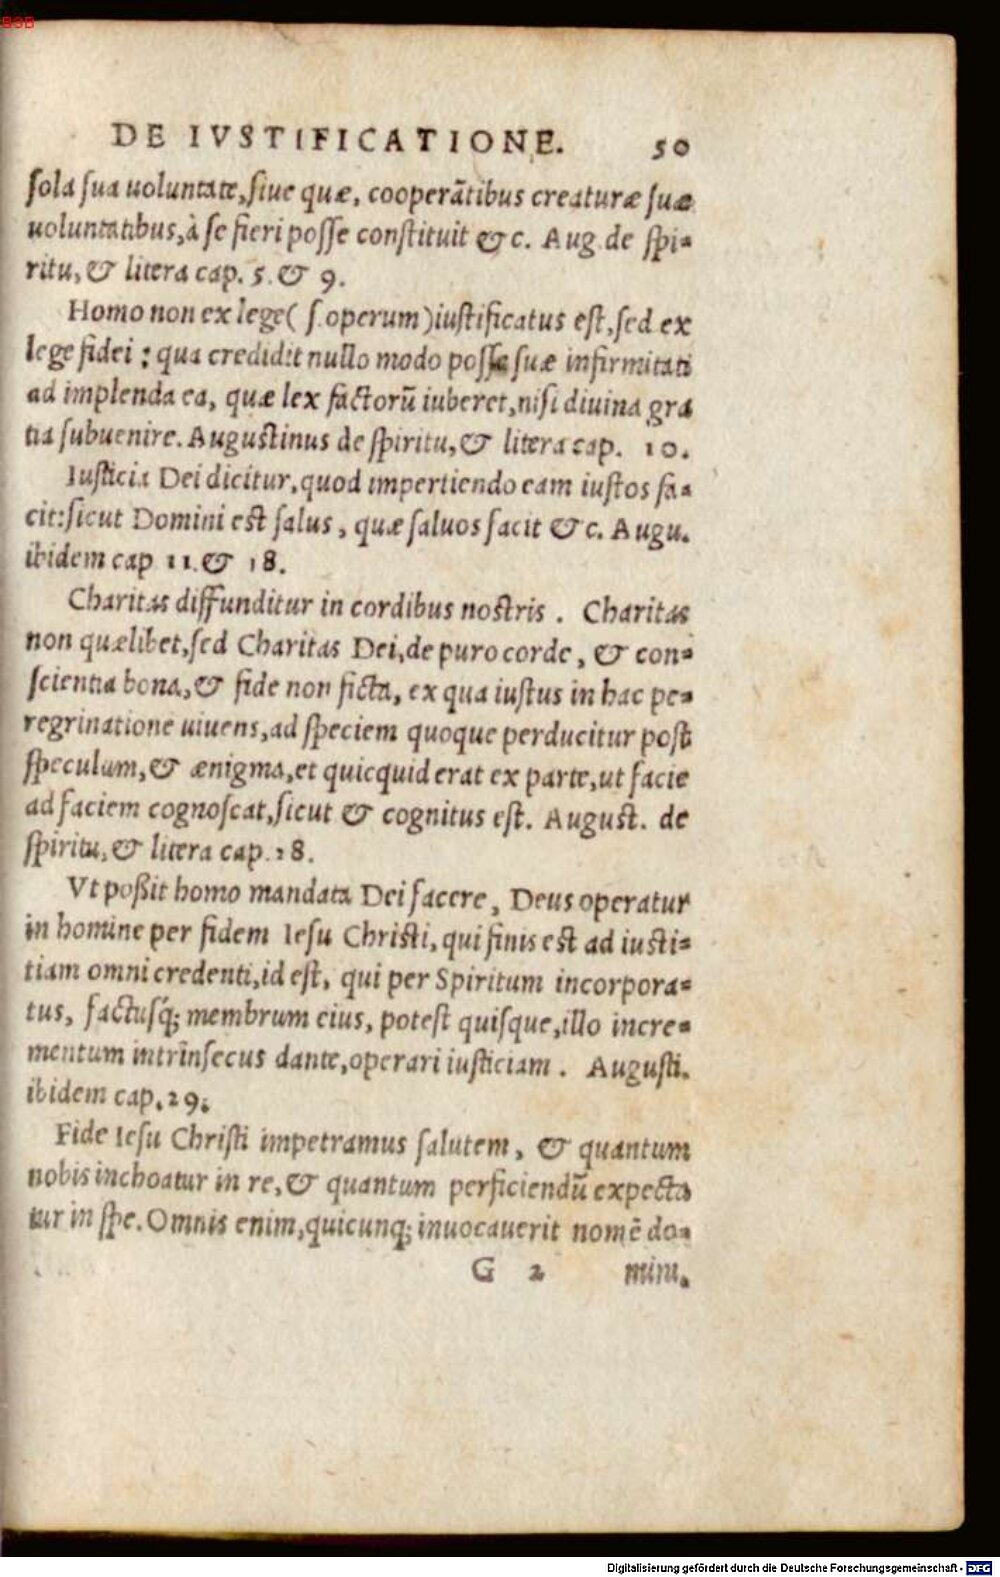 B3B
DE IVSTIFICATIONE. 50
sola sua uoluntate, siue quæ, cooperãtibus creaturæ suæ
uoluntatibus, à se fieri posse constituit & c. Aug. de spi=
ritu, & litera cap. 5. & 9.
Homo non ex lege ( s. operum ) iustificatus est, sed ex
lege fidei : qua credidit nullo modo posse suæ infirmitati
ad implenda ea, quæ lex factorũ iuberet, nisi diuina gra
tia subuenire. Augustinus de spiritu, & litera cap. 10.
Iusticia Dei dicitur, quod impertiendo eam iustos fa=
cit: sicut Domini est salus, quæ saluos facit & c. Augu.
ibidem cap 11. & 18.
Charitas diffunditur in cordibus nostris. Charitas
non quælibet, sed Charitas Dei, de puro corde, & con=
scientia bona, & fide non ficta, ex qua iustus in hac pe=
regrinatione uiuens, ad speciem quoque perducitur post
speculum, & ænigma, et quicquid erat ex parte, ut facie
ad faciem cognoscat, sicut & cognitus est. August. de
spiritu, & litera cap. 28.
Vt poßit homo mandata Dei facere, Deus operatur
in homine per fidem Iesu Christi, qui finis est ad iusti=
tiam omni credenti, id est, qui per Spiritum incorpora=
tus, factusq́; membrum eius, potest quisque, illo incre=
mentum intrinsecus dante, operari iusticiam. Augusti.
ibidem cap. 29.
Fide Iesu Christi impetramus salutem, & quantum
nobis inchoatur in re, & quantum perficiendũ expecta
tur in spe. Omnis enim, quicunq; inuocauerit nomẽ do=
G 2 mini.
Digitalisierung gefördert durch die Deutsche Forschungsgemeinschaft - DFG